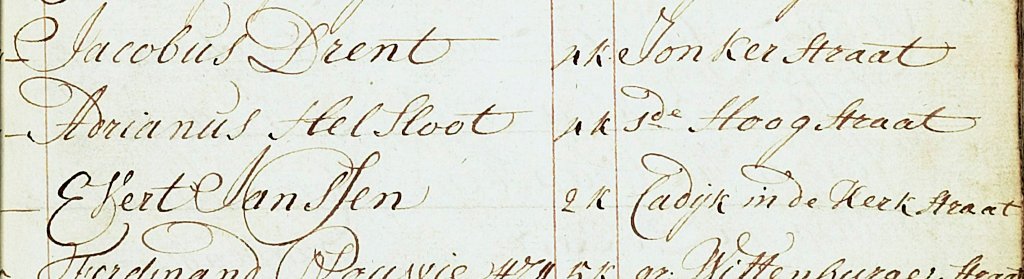 Jacobus Drent 4 k Jonker Straat
Adrianus Helsloot 4 k Sde Hoog Straat
Evert Janssen 2 k Cadijk in de Kerk Straat
Ferdinand 5 k gr. Wittenburger Straat